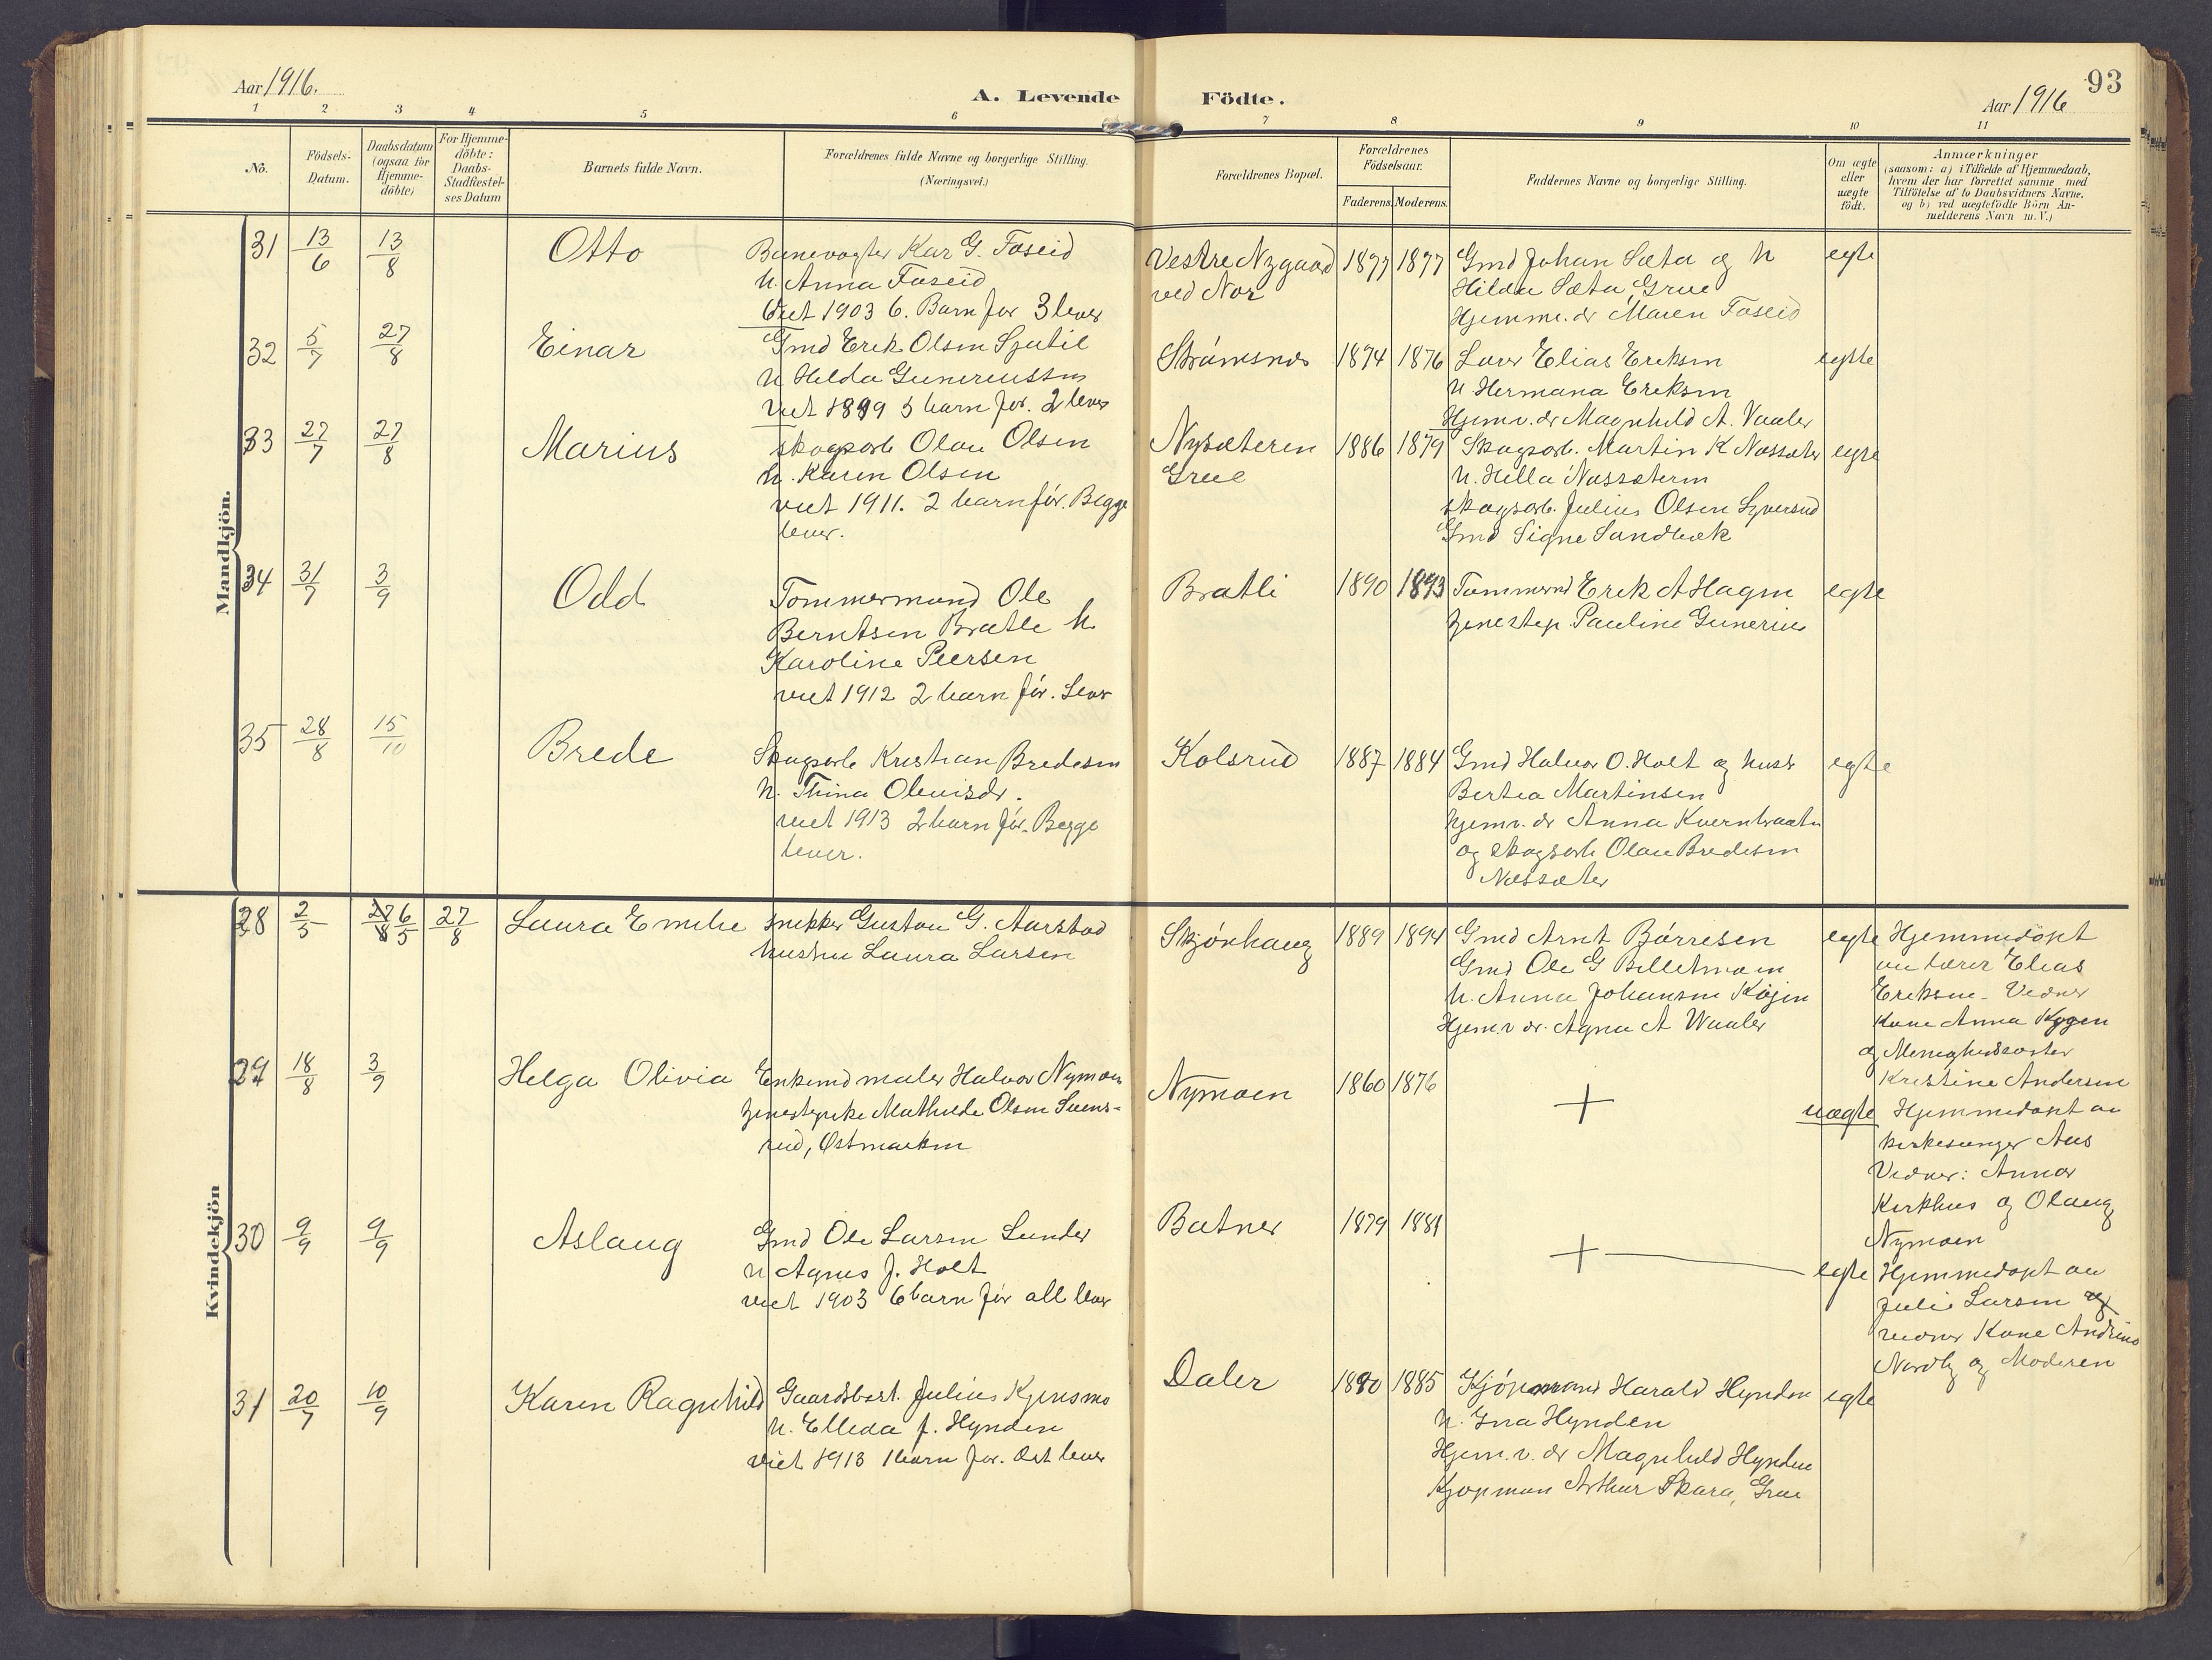 93
Aar 1916.
A. Levende Födte.
Aar 1916
1 2 3 4 5 6 7 8 9 10 11
No.
Födsels-
Datum.
Daabsdatum
(ogsaa for
Hjemme-
döbte)
For Hjemme-
döbte:
Daabs-
Stadfæstel-
ses Datum
Barnets fulde Navn.
Forældrenes fulde Navne og borgerlige Stilling.
(Næringsvei.)
Forældrenes Bopæl.
Forældrenes
Födselsaar.
Faderens. Moderens.
Faddernes Navne og borgerlige Stilling.
Om ægte
eller
uægte
födt.
Anmærkninger
(saasom: a) i Tilfælde af Hjemmedaab,
hvem der har forrettet samme med
Tilföielse af to Daabsvidners Navne,
og b) ved uægtefödte Börn An-
melderens Navn m. V.)
Mandkjön.
31 13/6 13/8 Otto
Banevogter Kar G. Foseid
h. Anna Foseid
Viet 1903 6. Barn før 3 lever
Vestre Nygaard
ved Nor
1877 1877
Gmd Johan Sæta og h
Hilda Sæta Grue
Hjemme. dr Maren Foseid
egte
32 5/7 27/8 Einar
Gmd Erik Olsen
h Hilda
viet 1899 5 barn før. 2 lever
Strømsnes
1874 1876
Lærer Elias Eriksen
h. Hermana Eriksen
Hjemv. dr Magnhild A. Vaaler
egte
33 27/7 27/8 Marius
Skogsarb Olav Olsen
h. Karen Olsen
viet 1911. 2 barn før. Begge
lever.
Nysæteren
Grue
1886 1879
Skogsarb. Martin K Næssæter
h. Hilla Næssæteren
skogsarb. Julius Olsen Syversud
Gmd Signe Sandbæk
egte
34 31/7 3/9 Odd
Tommermand Ole
Berntsen Bratle h.
Karoline Peersen
viet 1912 2 barn før. Lever
Bratli
1890 1893
Tømmermd Erik A Hagen
tjenestep. Pauline Gunerius
egte
35 28/8 15/10 Brede
Skogsarb Kristian Bredesen
h. Thina Olevisdr.
viet 1913 2 barn før. Begge
lever.
Kolsrud
1887 1884
Gmd Halvor O. Holt og hustr
Bertea Martinsen
hjemv. dr Anna Kvernbraaten
og skogsarb Olav Bredesen
Næssæter
egte
Kvindekjön
28 2/5 27/8 6/5 27/8 Laura Emelie
snekker Gustav G. Aarstad
hustru Laura Larsen
Skjønhaug
1889 1894
Gmd Arnt Børresen
Gmd Ole G
h. Anna Johansen Køjen
Hjemv dr. Agna A Waaler
egte
Hjemmedøpt
av lærer Elias
Eriksen. Vidner
Kone Anna Kygen
og Menighedssøster
Kristine Andersen
29 18/8 3/9 Helga Olivia
Enkemd maler Halvor Nymoen
tjenestepike Mathilde Olsen Svens-
rud, Østmarken
Nymoen
1860 1876
+
uægte
Hjemmedøpt av
kirkesanger Aas
Vidner: Anna
Kirkhus og Olaug
Nymoen
30 9/9 9/9 Aslaug
Gmd Ole Larsen Lunder
h Agnes J. Holt
viet 1903 6 barn før all lever
Batner
1879 1881
+
egte
Hjemmedøpt av
Julie Larsen og
vidner Kone Andrine
Nordby og Moderen
31 20/7 10/9 Karen Ragnhild
Gaardsbest. Julius Kjensmo
h. Elleda f. Hynden
viet 1913 1 barn før. Det lever
Daler
1880 1885
Kjøpmand Harald Hynden
h. Ina Hynden
Hjem.v. dr Magnhild Hynden
Kjøpman Arthur Skara, Grue
egte